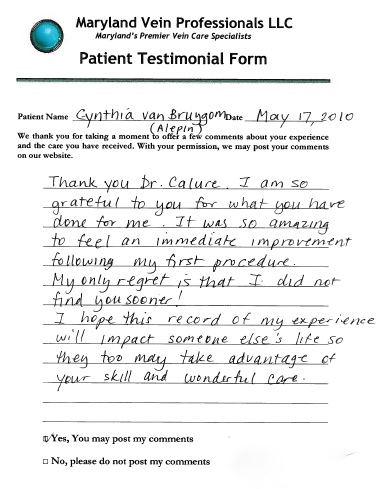 Maryland Vein Professionals LLC
Maryland's Premier Vein Care Specialists
Patient Testimonial Form
Patient Name Cynthia van Bruggom Date May 17, 2010
(Alepin)
We thank you for taking a moment to offer a few comments about your experience
and the care you have received. With your permission, we may post your comments
on our website.
Thank you Dr. Calure. I am so
grateful to you for what you have
done for me. It was so amazing
to feel an immediate improvement
following my first procedure.
My only regret is that I did not
find you sooner!
I hope this record of my experience
will impact someone else's life so
they too may take advantage of
your skill and wonderful care.
Yes, You may post my comments
No, please do not post my comments